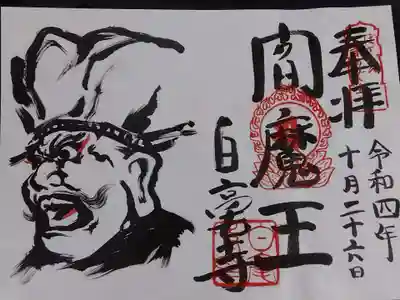 奉拝
令和四年
十月二十六日
閻魔王
白毫寺